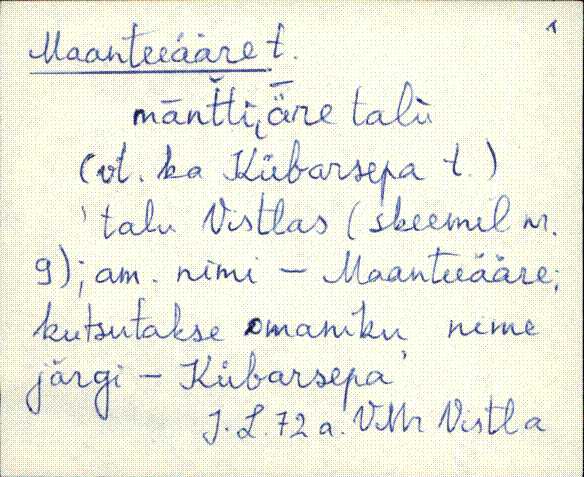 1
Maanteeääre t.
mānt̆ti̮ǟre talù
(vt. ka Kübarsepa t.)
'talu Vistlas (skeemil nr.
9); am. nimi - Maanteeääre;
kutsutakse omaniku nime
järgi - Kübarsepa'
J. L. 72 a. VMr Vistla